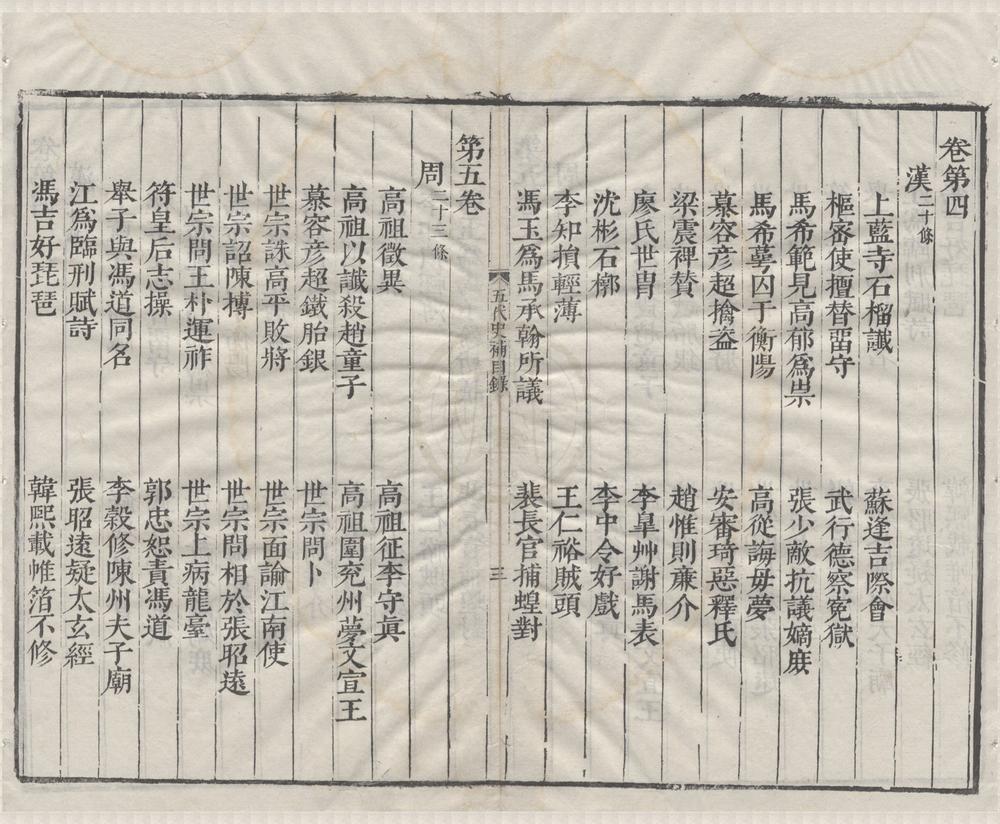 卷第四
漢二十條
上藍寺石榴讖
蘇逢吉際會
樞密使擅替畱守
武行德察冤獄
馬希範見高郁爲祟
張少敵抗議嫡庻
馬希蕚囚于衡陽
高從誨毋夢
慕容彦超擒盗
安審琦惡釋氏
梁震裨賛
趙惟則亷介
廖氏世胄
李臯艸謝馬表
沈彬石槨
李中令好戲
李知損輕薄
王仁裕賊頭
馮玉爲馬承翰所議
裴長官捕蝗對
五代史補目錄
三
第五卷
周二十三條
高祖徵異
高祖征李守眞
高祖以讖殺趙童子
高祖圍兖州夢文宣王
慕容彦超鐵胎銀
世宗問卜
世宗誅高平敗將
世宗面諭江南使
世宗詔陳摶
世宗問相於張昭遠
世宗問王朴運祚
世宗上病龍臺
符皇后志操
郭忠恕責馮道
舉子與馮道同名
李穀修陳州夫子廟
江爲臨刑賦詩
張昭遠疑太玄經
馮吉好琵琶
韓熙載帷箔不修